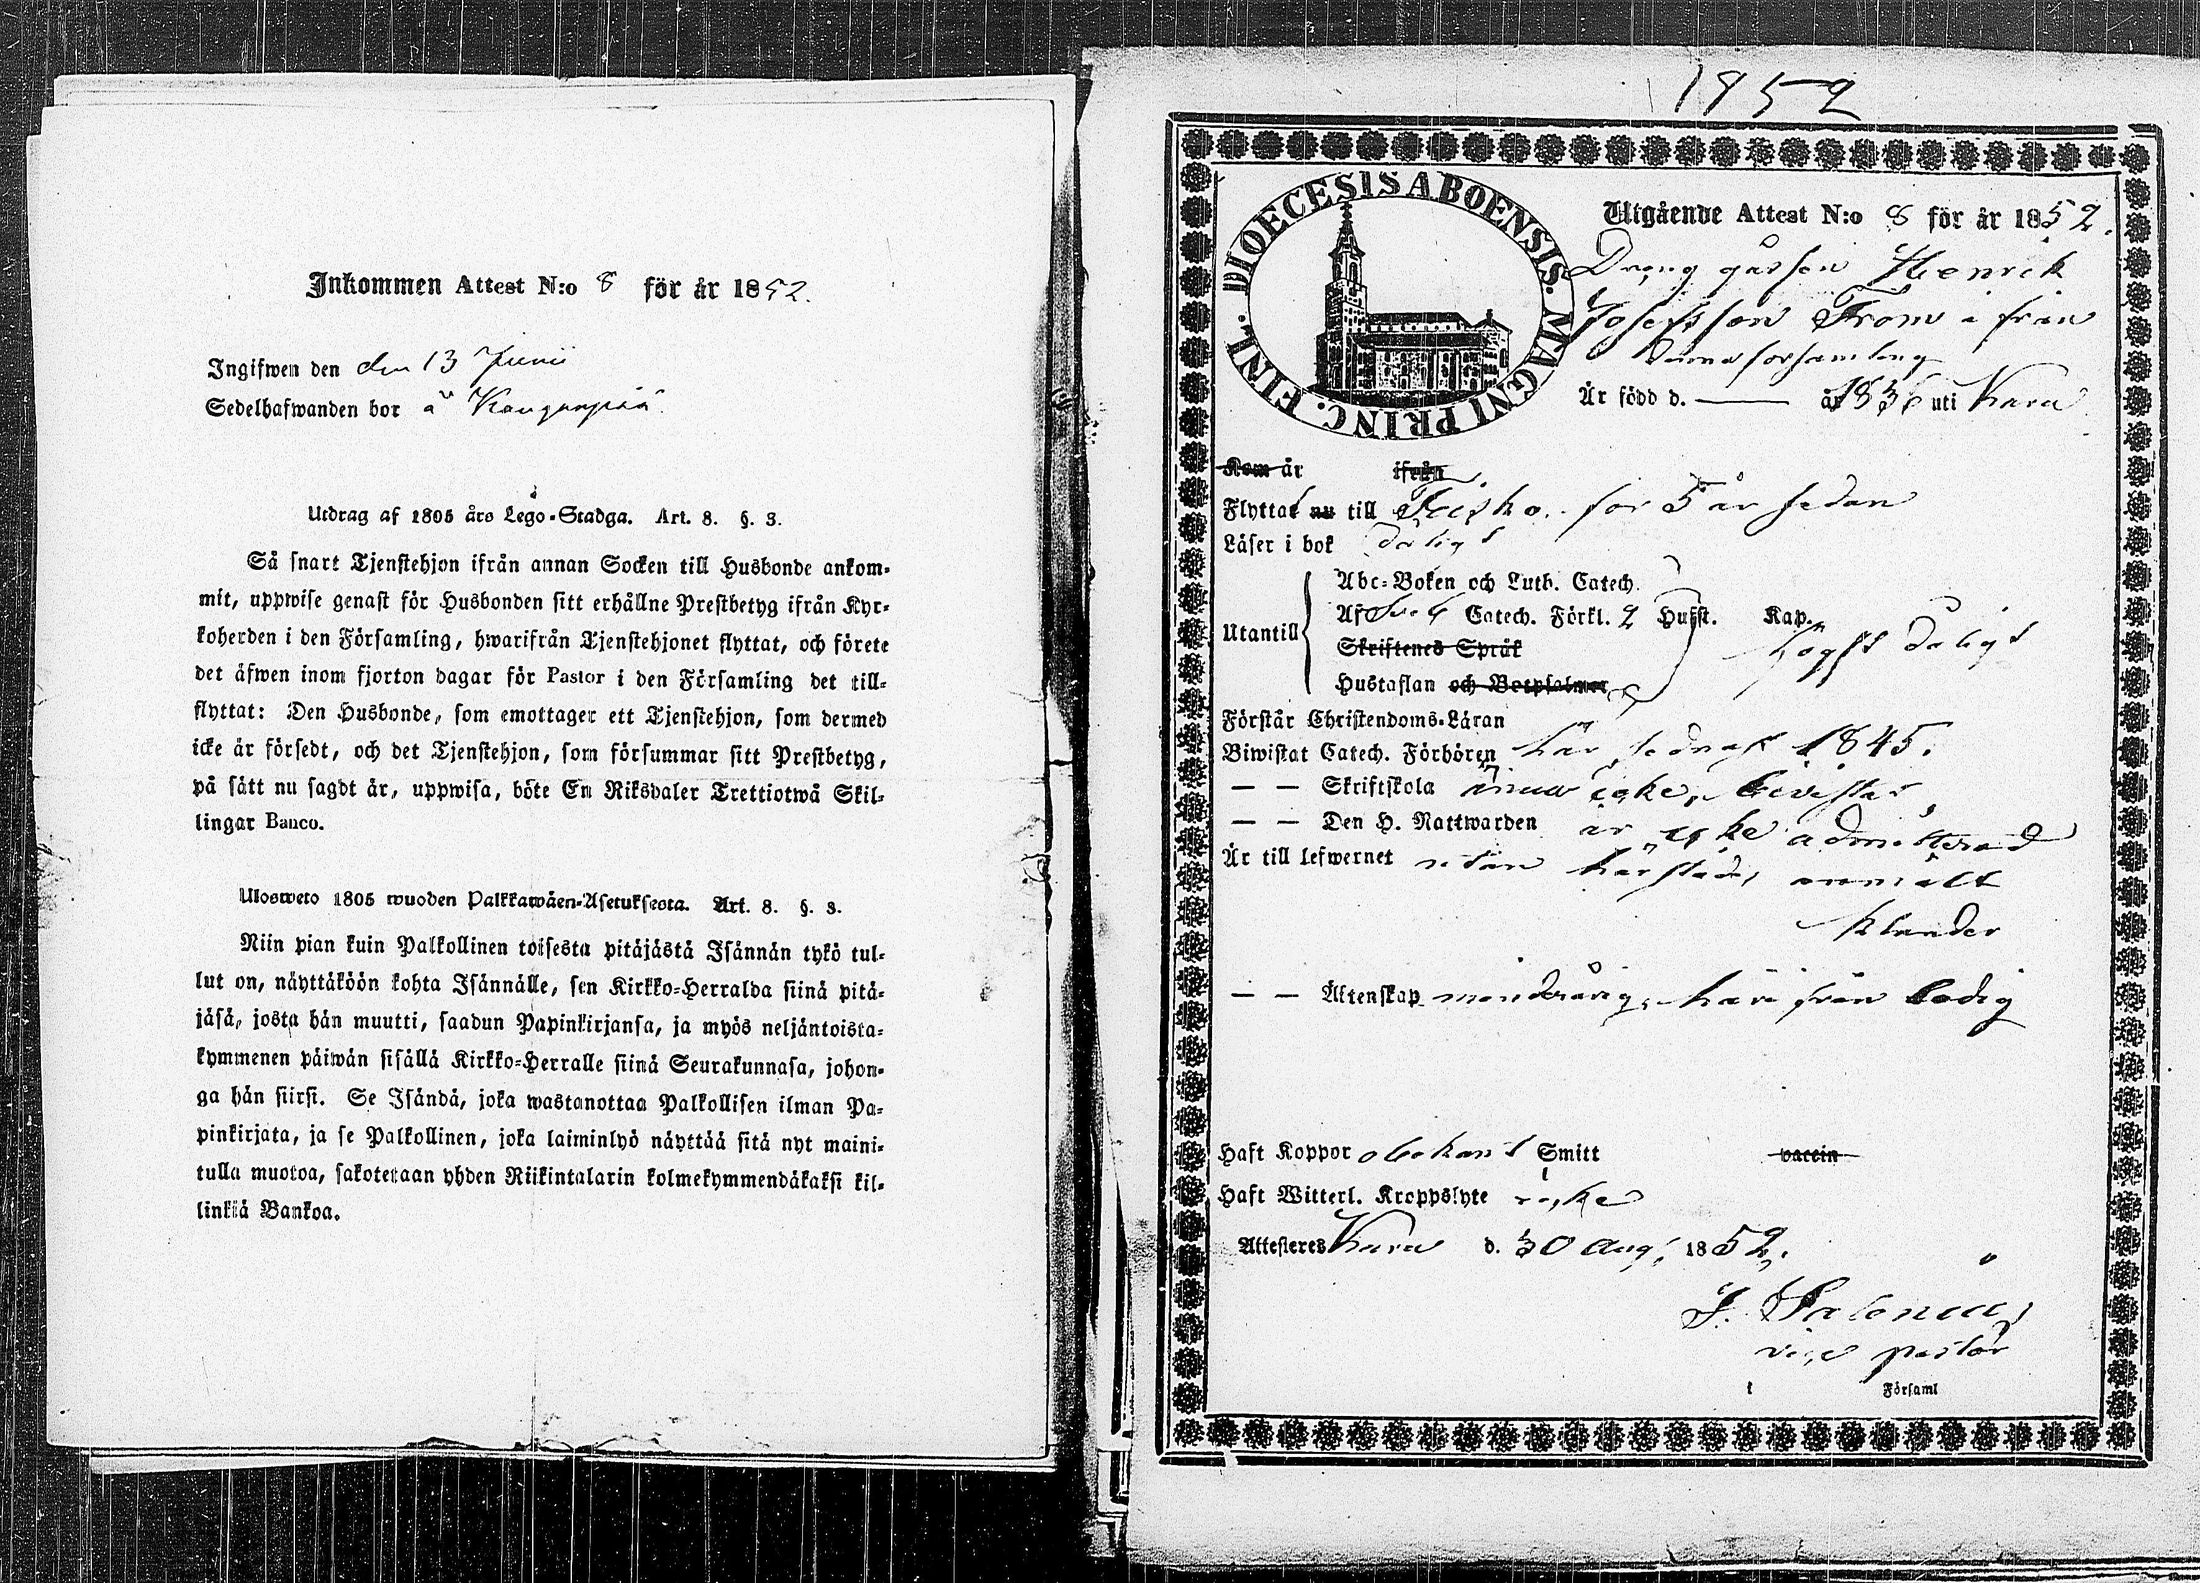 Inkommen Attest N:o 8 för år 1852.
Ingifwen den den 13 Junii
Sedelhafwanden bor å
Utdrag af 1805 års Lego-Stadga. Art. 8. §. 3.
Så snart Tjenstehjon ifrån annan Socken till Husbonde ankom-
mit, uppwise genast för Husbonden sitt erhållne Prestbetyg ifrån Kyr-
koherden i den Församling, hwarifrån Tjenstehjonet flyttat, och förete
det äfwen inom fjorton dagar för Pastor i den Församling det till-
flyttat: Den Husbonde, som emottager ett Tjenstehjon, som dermed
icke är försedt, och det Tjenstehjon, som försummar sitt Prestbetyg,
på sätt nu sagdt är, uppwisa, böte En Riksdaler Trettiotwå Skil-
lingar Banco.
Ulosweto 1805 wuoden Palkkawäen-Asetuksesta. Art. 8. §. 3.
Niin pian kuin Palkollinen toisesta pitäjästä Isännän tykö tul-
lut on, näyttäköön kohta Isännälle, sen Kirkko-Herralda siinä pitä-
jäsä, josta hän muutti, saadun Papinkirjansa, ja myös neljäntoista-
kymmenen päiwän sisällä Kirkko-Herralle siinä Seurakunnasa, johon-
ga hän siirsi. Se Isändä, joka wastanottaa Palkollisen ilman Pa-
pinkirjata, ja se Palkollinen, joka laiminlyö näyttää sitä nyt maini-
tulla muotoa, sakotetaan yhden Riikintalarin kolmekymmendäkaksi kil-
linkiä Bankoa.
1852
DIOECESIS ABOENSIS. MAGNI PRINC. FINL.
Utgående Attest N:o 8 för år 1852.
Dräng gåssen Henrik
Josefsson From ifrån
församling
Är född d. — år 1836 uti Karu
Kom år ifrån
Flyttat nu till Teisko för 5 år sedan
Läser i bok dåligt
Abc-Boken och Luth. Catech.
Utantill Af Sveb Catech. Förkl. 2 Hufst. Kap.
högst dåligt
Skriftenes Språk
Hustaflan och Botpsalmer
Förstår Christendoms-Läran
Biwistat Catech. Förhören här sednast 1845.
— — Skriftskola ännu icke bevistat
— — Den H. Nattwarden är icke admitterad
Är till lefwernet utan härstädes anmält
klander
— — Äktenskap minderårig, härifrån ledig
Haft Koppor obekant Smitt vaccin
Haft Witterl. Kroppslyte icke
Attesteres Karu d. 30 Aug. 1852.
vice pastor
i Församl